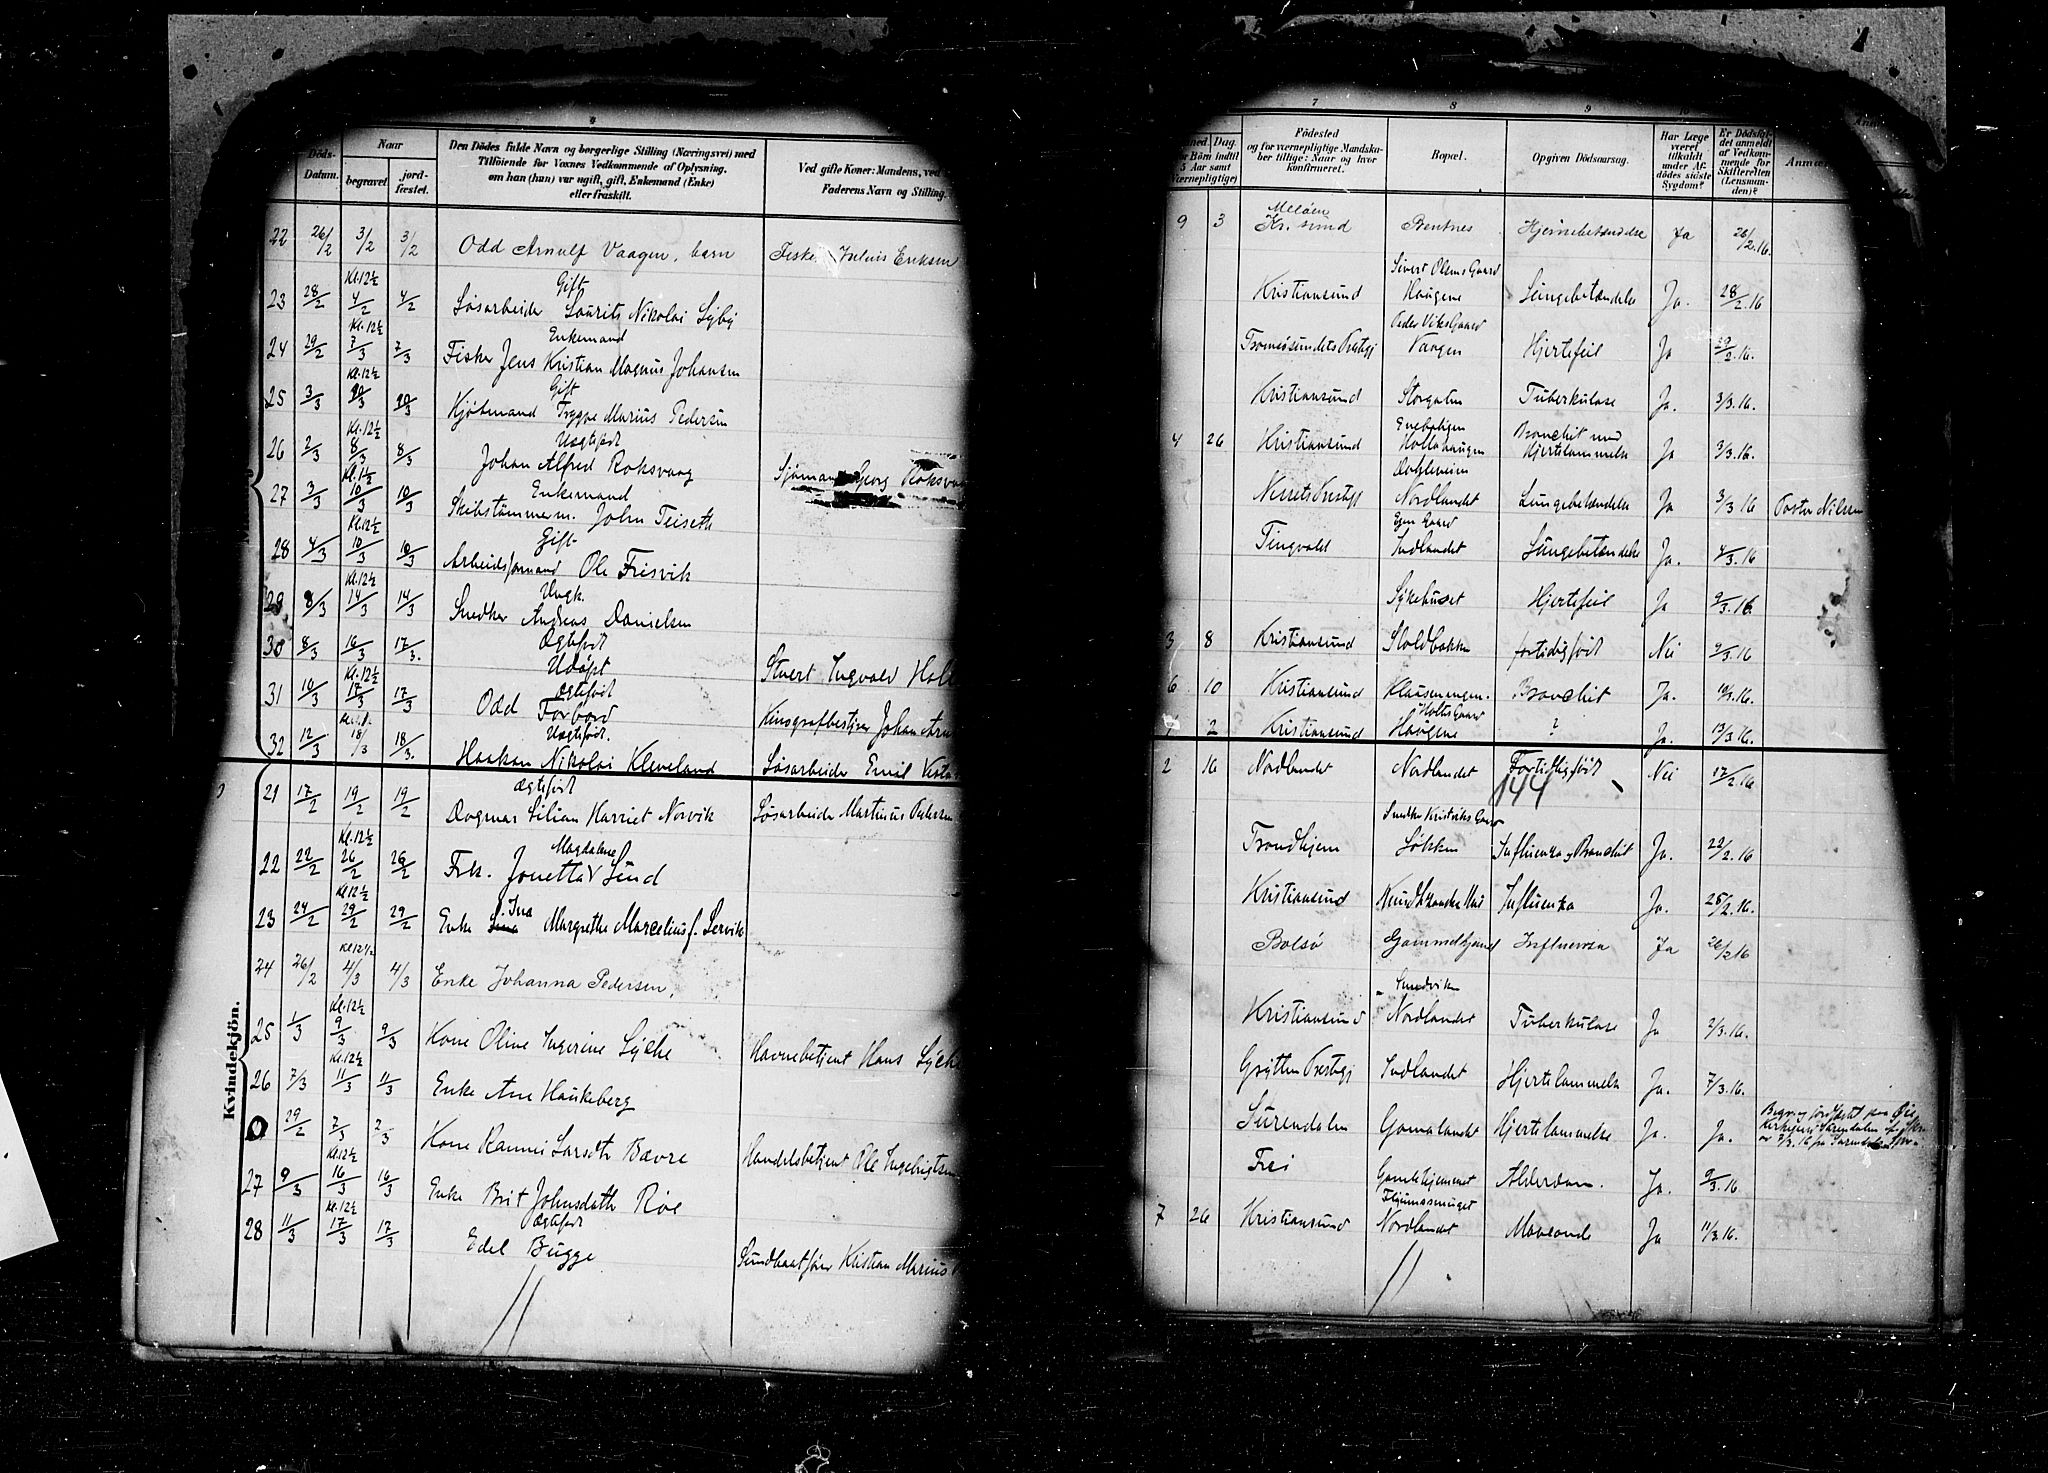 4
Döds-Datum.
Naar
begravet.
jord-fæstet.
Den Dödes fulde Navn og borgerlige Stilling (Næringsvei) med
Tilföiende for Voxnes Vedkommende af Oplysning,
om han (hun) var ugift, gift, Enkemand (Enke)
eller fraskilt.
Ved gifte Koner: Mandens, ved
Faderens Navn og Stilling.
22 26/2 3/2 3/2 Odd Arnulf Vaagen, barn Fisker Julius Eriksen
Kl. 12½ Gift
23 28/2 4/2 4/2 Søsarbeider Laurits Nikolai Lyby
Kl. 12½ Enkemand
24 29/2 7/3 7/3 Fisker Jens Kristian Magnus Johansen
Kl. 12½ Gift
25 3/3 10/3 10/3 Kjøbmand Trygve Marius Pedersen
Kl. 12½ Uegtefødt
26 2/3 8/3 8/3 Johan Alfred Roksvaag Sjømand Georg Roksvaa
Kl. 1½ Enkemand
27 3/3 10/3 10/3 Skibstømmerm. John Teiseth
Kl. 12½ Gift
28 4/3 10/3 10/3 Arbeidsformand Ole Frisvik
Kl. 12½ Ungk.
29 8/3 14/3 14/3 Snedker Andreas Danielsen
Ægtefødt
30 8/3 16/3 17/3. Udøpt Stuert Ingvald Hol
Kl. 12½ Ægtefødt
31 10/3 17/3 17/3 Odd Forbord Kinografbestyrer Johan Arn
Uegtefødt.
32 12/3 18/3 18/3. Haakon Nikolai Kleveland Søsarbeider Emil
Kvindekjön.
Ægtefødt
21 17/2 19/2 19/2 Dagmar Lilian Harriet Norvik Søsarbeider Martinus Pedersen
Kl. 12½ Magdalene
22 22/2 26/2 26/2 Frk. Jonetta V Lund
Kl 12½ Ina
23 24/2 29/2 29/2 Enke Margrethe Marcelius f. Lervik
Kl 12½
24 26/2 4/3 4/3 Enke Johanna Pedersen.
Kl. 12½
25 1/3 9/3 9/3 Kone Oline Ingerine Lyche Havnebetjent Hans Lyche
Kl. 12½
26 7/3 11/3 11/3 Enke Ane Haukeberg
0 29/2 7/3 2/3 Kone Rannei Larsdtr Bævre Handelsbetjent Ole Ingebrigtsen
Kl. 12½
27 9/3 16/3 16/3 Enke Brit Johnsdatter Röe
Kl. 12½ Ægtefødt
28 11/3 17/3 17/3 Edel Bugge Sundbaatfører Kristian Marius
7 8 9 10
Dag
for Börn indtil
5 Aar samt
Værnepligtige)
Födested
og for værnepligtige Mandska-
ber tillige: Naar og hvor
konfirmeret.
Bopæl.
Opgiven Dödsaarsag.
Har Læge
været
tilkaldt
under Af-
dödes sidste
Sygdom?
Er Dödsfal-
det anmeldt
af Vedkom-
mende for
Skifteretten
(Lensman-
den)?
9 3 Kr. sund Bentnes Hjernebetændelse Ja 26/2.16.
Sivert Olsens Gaard
Kristiansund Haugene Lungebetændelse Ja. 28/2.16
Peder Viks Gaard
Tromsøsundets Prestegj Vaagen Hjertefeil Ja 29/2.16.
Kristiansund Storgaten Tuberkulose Ja. 3/3.16.
Eneboligen
4 26 Kristiansund Hollahaugen Bronchit med Hjertelammelse Ja 3/3.16.
Nessets Prestegj Nordlandet Lungebetændelse Ja 3/3.16 Pastor Nilsen
Egen Gaard
Tingvold Indlandet Lungebetændelse Ja. 4/3.16
Sykehuset Hjertefeil Ja 9/3.16
3 8 Kristiansund Skoldbakken fortidigfødt Nei 9/3.16
6 10 Kristiansund Klausenengen. Bronchit Ja. 10/3.16.
Holts Gaard
2 Kristiansund Haugene ? Ja. 13/3.16.
2 16 Nordlandet Nordlandet Fortidligfødt Nei 17/2.16
144
Snedker Kristviks Gaard
Trondhjem Løkken Influenza og Bronchit Ja. 22/2.16
Kristiansund Influenza Ja. 25/2.16.
Bolsø Gammelhjemmet Influensa Ja 26/2 16
Sundviken
Kristiansund Nordlandet Tuberkulose Ja 2/3.16.
Grytten Prestegj Indlandet Hjertelammelse Ja. 7/3.16.
Surendalen Gomalandet Hjertelammelse Ja. Ja. Begr. og jordfæstet paa Øie
Kirkegaard Surendalen
Frei Gamlehjemmet Alderdom. Ja. 9/3.16
7 26 Kristiansund Nordlandet Mavesonde Ja 11/3.16.